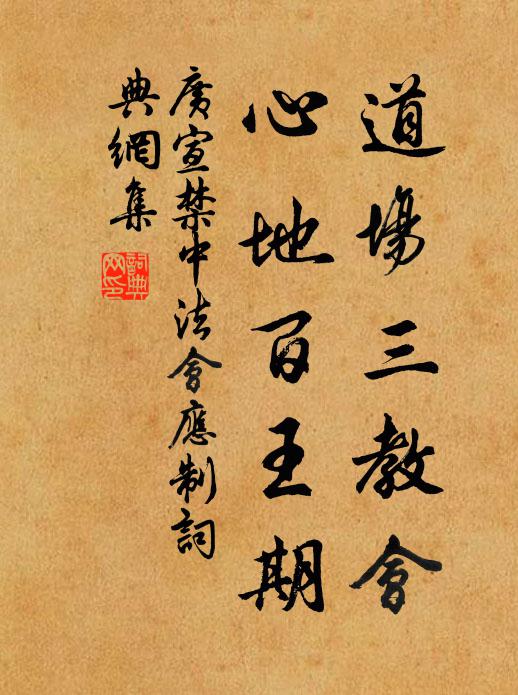 道場三教會
心地百王期
廣宣禁中法會應制詞
典網集
詞典
网印